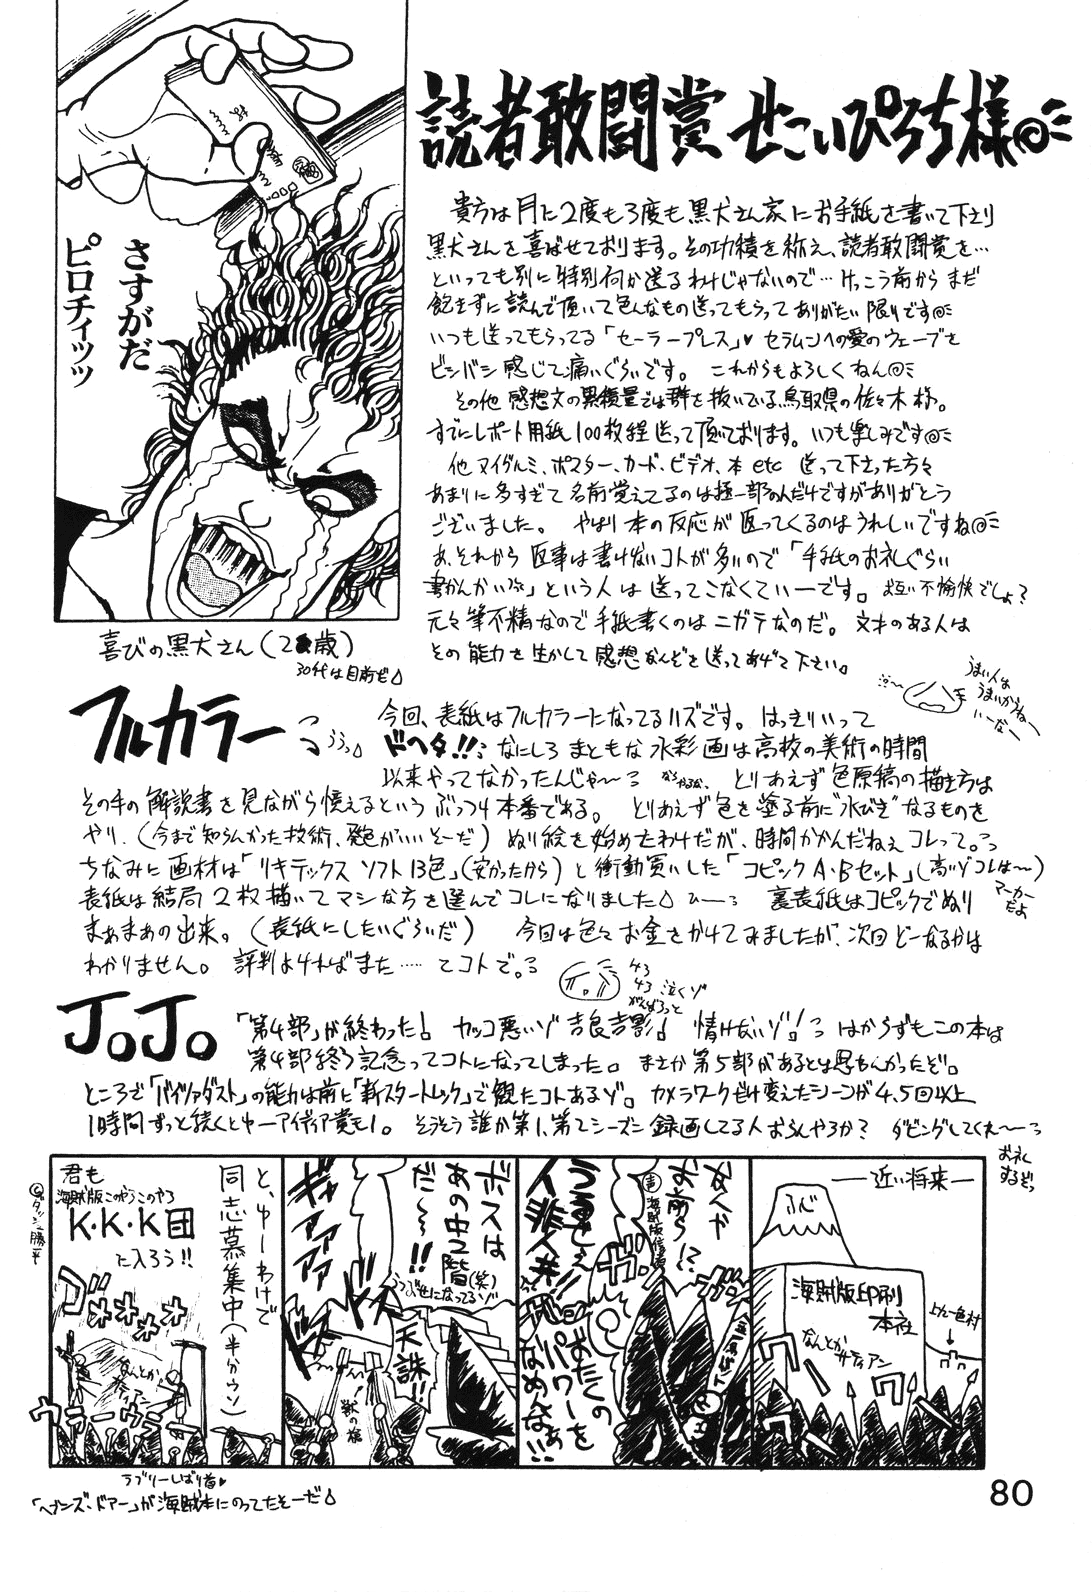 読者敢闘賞 せこいぴろち様
さすがだ
ピロチィッッ
喜びの黒犬さん(2 歳)
30代は目前だ
貴方は月に2度も3度も黒犬さん家にお手紙を書いて下さり
黒犬さんを喜ばせております。その功績を称え、読者敢闘賞を…
といっても別に特別何か送るわけじゃないので…けっこう前からまだ
飽きずに読んで頂いて色んなもの送ってもらってありがたい限りです
いつも送ってもらってる「セーラープレス」♥ セラムンへの愛のウェーブを
ビンバン感じて痛いぐらいです。 これからもよろしくねん
その他 感想文の累積量では群を抜いている鳥取県の佐々木様。
すでにレポート用紙100枚程送って頂いております。いつも楽しみです
他 ヌイグルミ、ポスター、カード、ビデオ、本 etc 送って下さった方々
あまりに多すぎて名前覚えてるのは極一部の人だけですがありがとう
ございました。 やはり本の反応が返ってくるのはうれしいですね
あ、それから 返事は書けないコトが多いので「手紙のお礼ぐらい
書かんかい」という人は送ってこなくていーです。お互い不愉快でしょ?
元々筆不精なので手紙書くのはニガテなのだ。文才のある人は
その能力を生かして感想なんぞを送ってあげて下さい。
うまい人は
うまいからねー
いーなー
フルカラー
ううっ
今回、表紙はフルカラーになってるハズです。はっきりいって
ドヘタ!! なにしろ まともな水彩画は高校の美術の時間
以来やってなかったんじゃ〜 とりあえず色原稿の描き方は
その手の解説書を見ながら憶えるという ぶっつけ本番である。 とりあえず色を塗る前に"水びき"なるものを
やり、(今まで知らんかった技術、発色がいいそーだ) ぬり絵を始めたわけだが、時間かかんだねぇ コレって。
ちなみに画材は「リキテックス ソフト13色」(安かったから)と衝動買いした「コピックA・Bセット」(高いゾコレは〜)
マーカーだよ
表紙は結局2枚描いてマシな方を選んでコレになりました ひーっ 裏表紙はコピックでぬり
まぁまぁの出来。(表紙にしたいぐらいだ) 今回は色々お金をかけてみましたが、次回どーなるかは
わかりません。評判よければまた……てコトで。
泣くゾ
がんばろっと
JoJo
「第4部」が終わった! カッコ悪いゾ 吉良吉影! 情けないゾ! はからずもこの本は
第4部終了記念ってコトになってしまった。まさか第5部があるとは思もんかったぞ。
ところで「バイツァダスト」の能力は前に「新スタートレック」で観たコトあるゾ。カメラワークだけ変えたシーンが4、5回以上
1時間ずっと続くとゆーアイディア賞もの。そうそう誰か第1、第2シーズン録画してる人おらんやろか? ダビングしてくれ〜っ
お礼
するぞっ
―近い将来―
ふじ
海賊版印刷
本社
上九一色村
なんとか
サティアン
女人や
お前ら!?
うるせえ
人非人共!!
おたくの
パワーを
なめんなぁ!!
ボスは
あの中2階(笑)
だ〜〜!!
天誅!!
獣の槍
ギャアアアァァ
と、ゆーわけで
同志募集中(半分ウソ)
君も
海賊版このやろうこのやろ
K・K・K団
に入ろう!!
ゴオォォォ
なんとか
サティアン
ウラーウラー
ラブリーしばり首♥
「ヘブンズ・ドアー」が海賊本にのってたそーだ
80